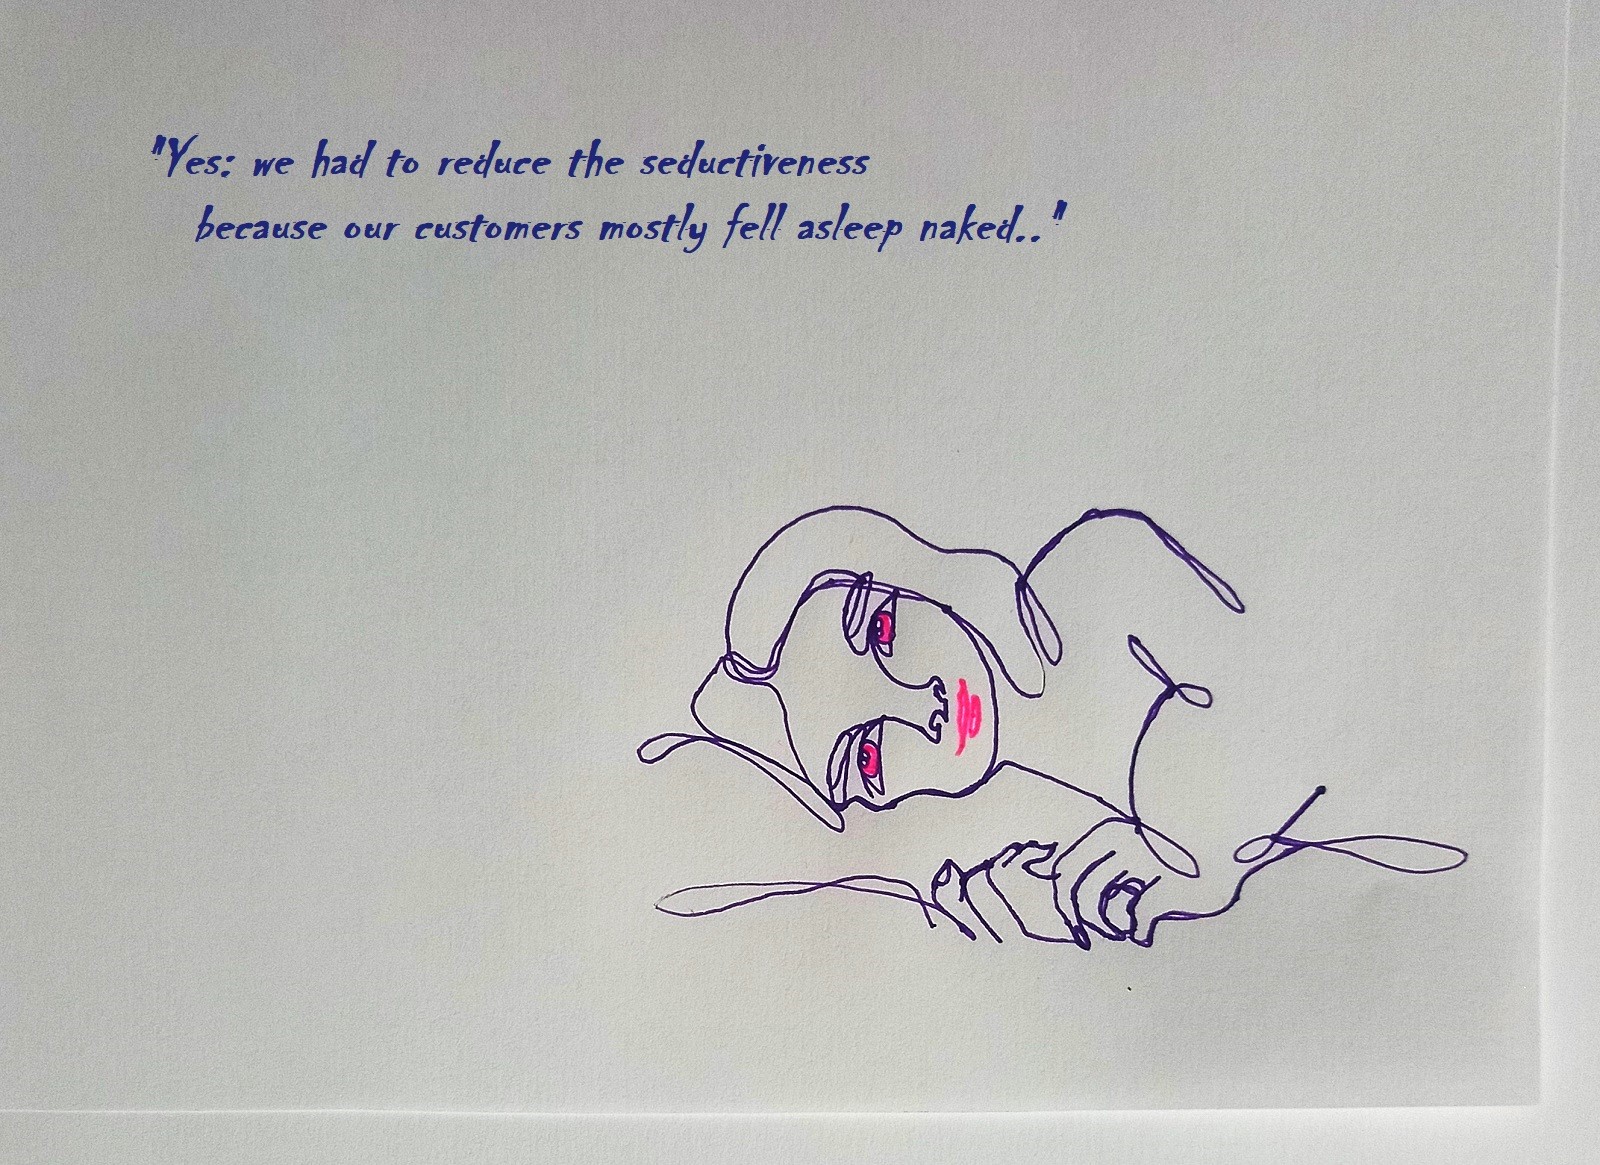 "Yes: we had to reduce the seductiveness
because our customers mostly fell asleep naked.."